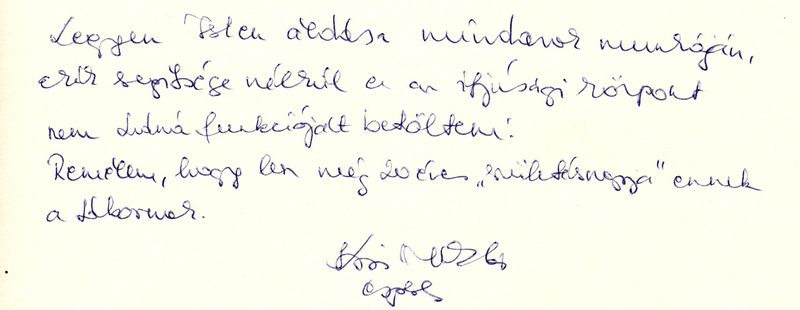 Legyen Isten áldása mindazok munkáján,
akik segítsége nélkül ez az ifjúsági központ
nem tudná funkcióját betölteni.
Remélem, hogy lesz még 20 éves „születésnapja” ennek
a tábornak.